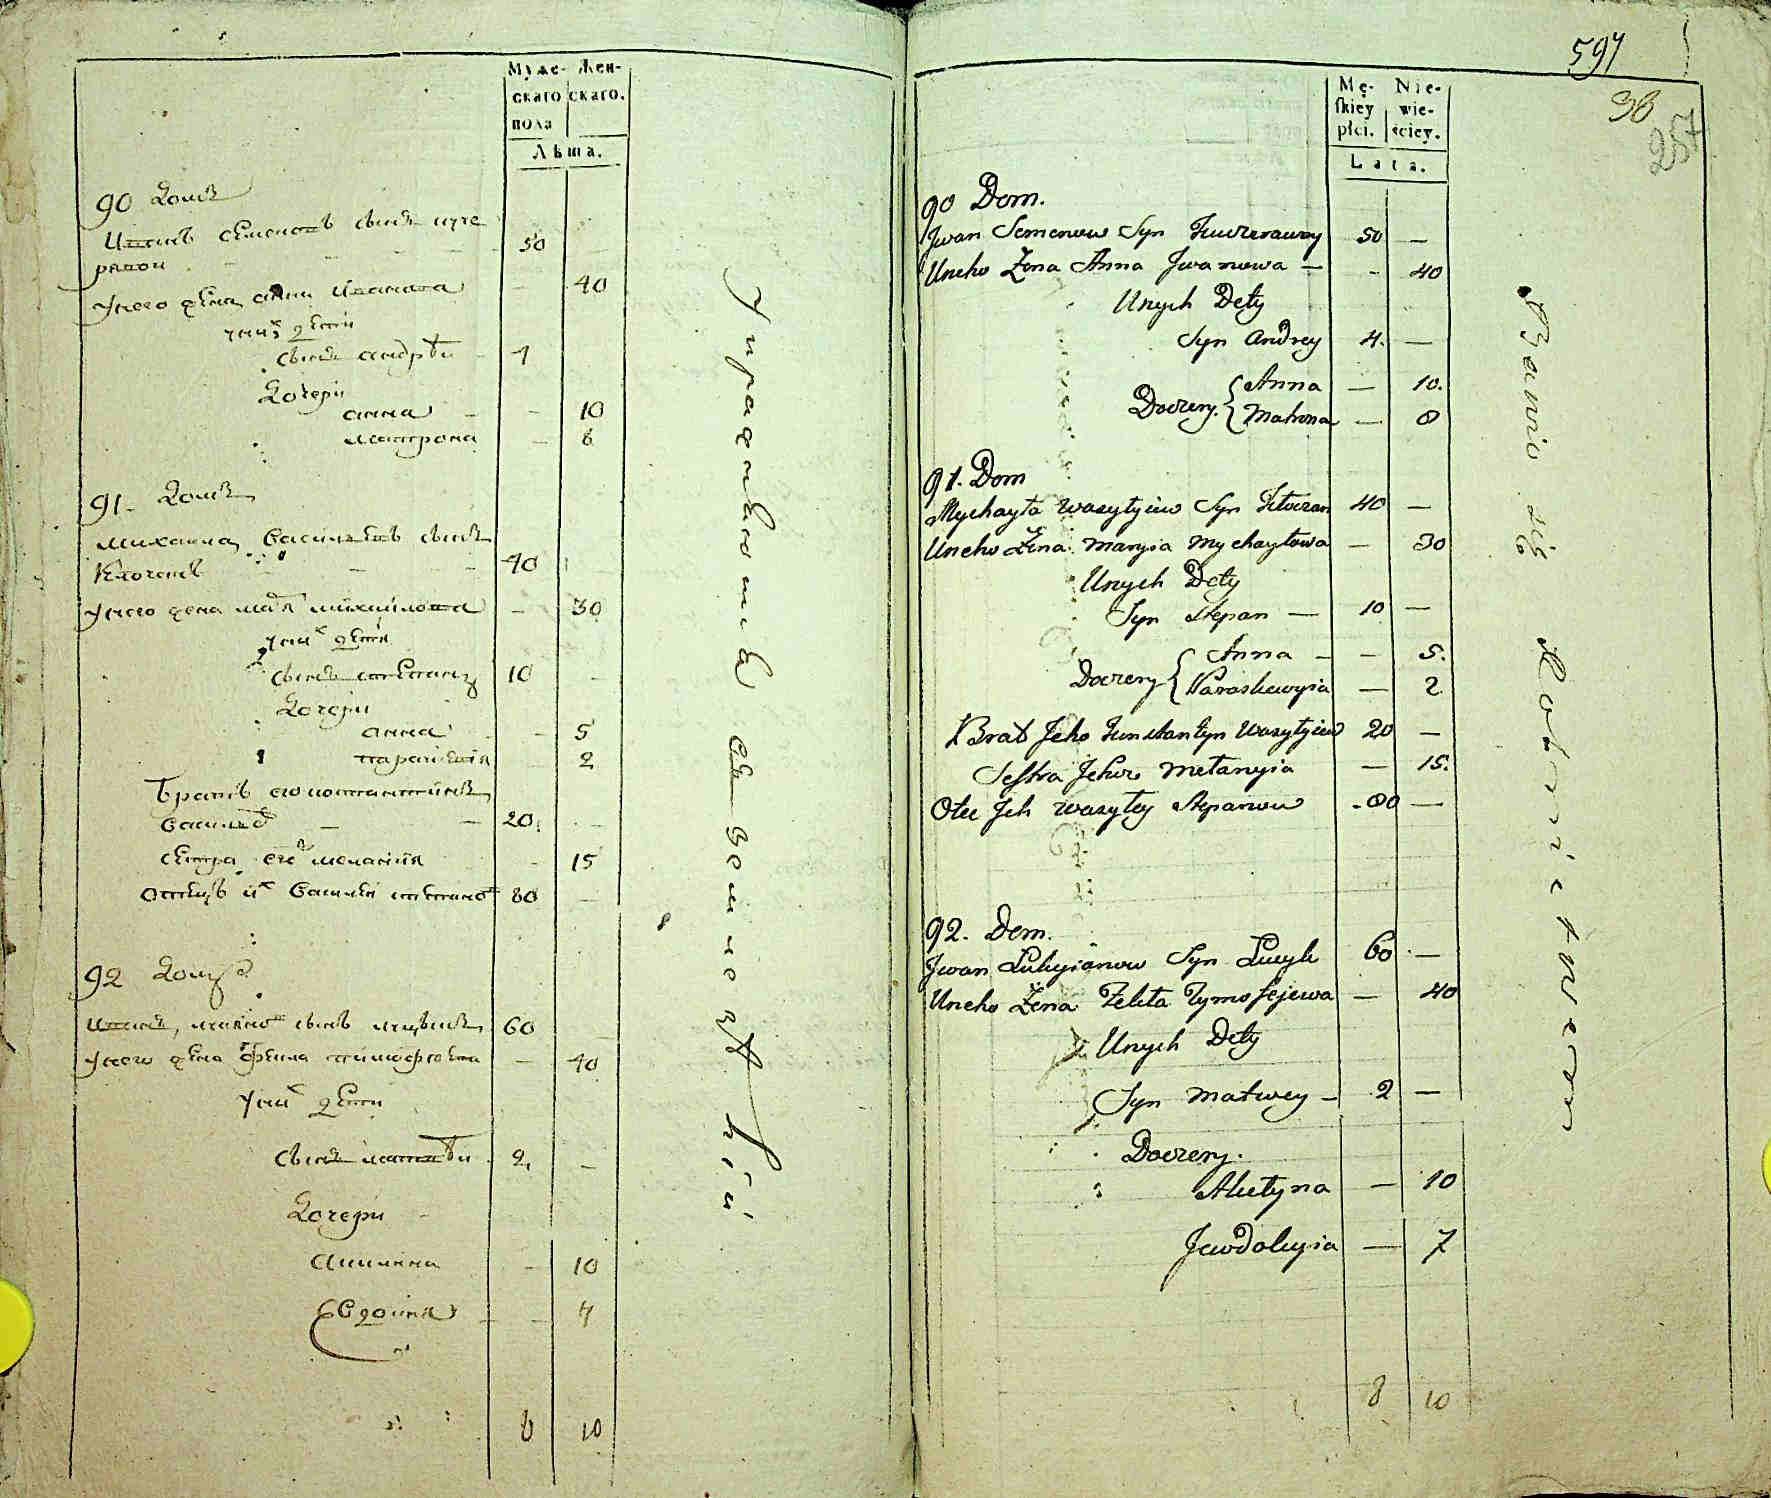 Муже- Жен-
скаго скаго.
пола
Лѣта.
90 Домъ
Иванъ Семеновъ сынъ куче
рявои 50
Унего жена анна Иванова 40
уних дети
сынъ андрѣи 4
Дочери
анна 10
матрона 8
91. Домъ
Михаила Васильевъ сынъ
Ключанъ 40
Унего жена мария михайлова 30
уних дети
сынъ степанъ 10
Дочери
анна 5
параскевия 2
Братъ его константинъ
Васильев 20
сестра его мелания 15
Отецъ их Василей степанов 80
92 Домъ
Иванъ лукянов сынъ луцыкъ 60
Унего жена Фекла тимофеева 40
Уних дети
сынъ матвѣи 2
Дочери
Акилина 10
Евдокия 7
8 10
Упражняются въ земледелии
597
38
257
Mę- Nie-
skiey wie-
płci. ściey.
Lata.
90 Dom.
Jwan Semenow Syn Kuczerawey 50 —
Uneho Żena Anna Jwanowa — - 40
Unych Dety
Syn Andrey 4. —
Anna — 10.
Doczery. { Matrona — 8
91. Dom
Mychayła Wasyłyiew Syn Kłoczan 40 —
Uneho Żena Maryia Mychayłowa — 30
Unych Dety
Syn Stepan — 10 —
Anna — - 5.
Doczery { Paraskewyia — 2
Brat Jeho Kunstantyn Wasyłyiew 20 —
Sestra Jehwo Mełanyia — 15.
Otec Jch Wasyłey Stepanow - 80 —
92. Dom.
Jwan Łukyianow Syn Łucyk 60 —
Uneho Żena Fekła Tymofiejewa — 40
Unych Dety
Syn Matwey — 2 —
Doczery.
Akułyna — 10
Jewdokyia — 7
8 10
Bawio się Rolnictwem